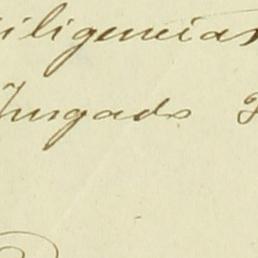 iligencias
Jusgado